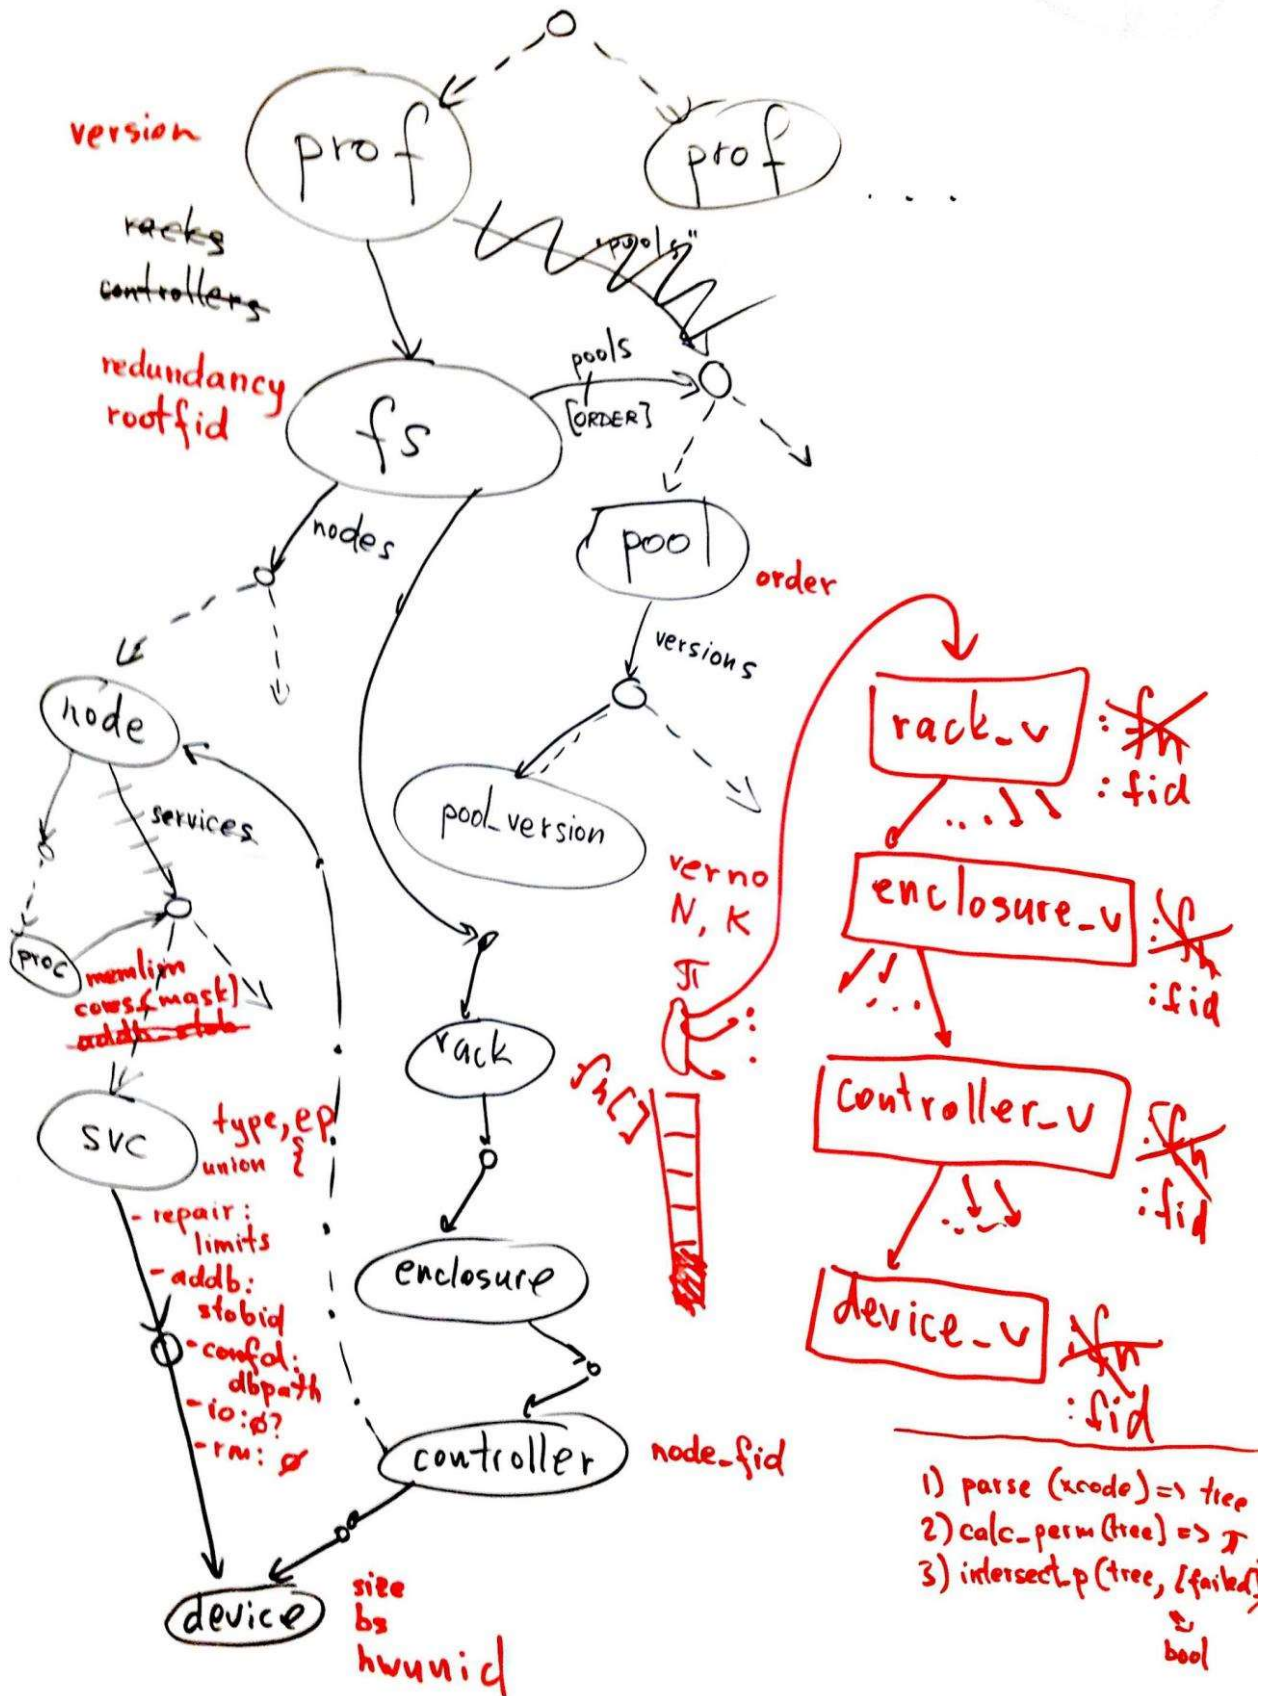 version
prof
prof
. . . .
racks
controllers
"pools"
redundancy
rootfid
fs
pools
[ORDER]
nodes
pool
order
versions
node
services
pool_version
proc
memlim
cores (mask)
svc
type, ep
union {
- repair:
limits
- addb:
stobid
- confd:
dbpath
- io: ø?
- rm: ø
rack
enclosure
controller
node_fid
device
size
bs
hwunid
verno
N, K
π
fn[]
rack_v
: fn
: fid
enclosure_v
: fn
: fid
controller_v
: fn
: fid
device_v
: fn
: fid
1) parse (xcode) => tree
2) calc_perm (tree) => π
3) intersect_p (tree, {failed}
bool